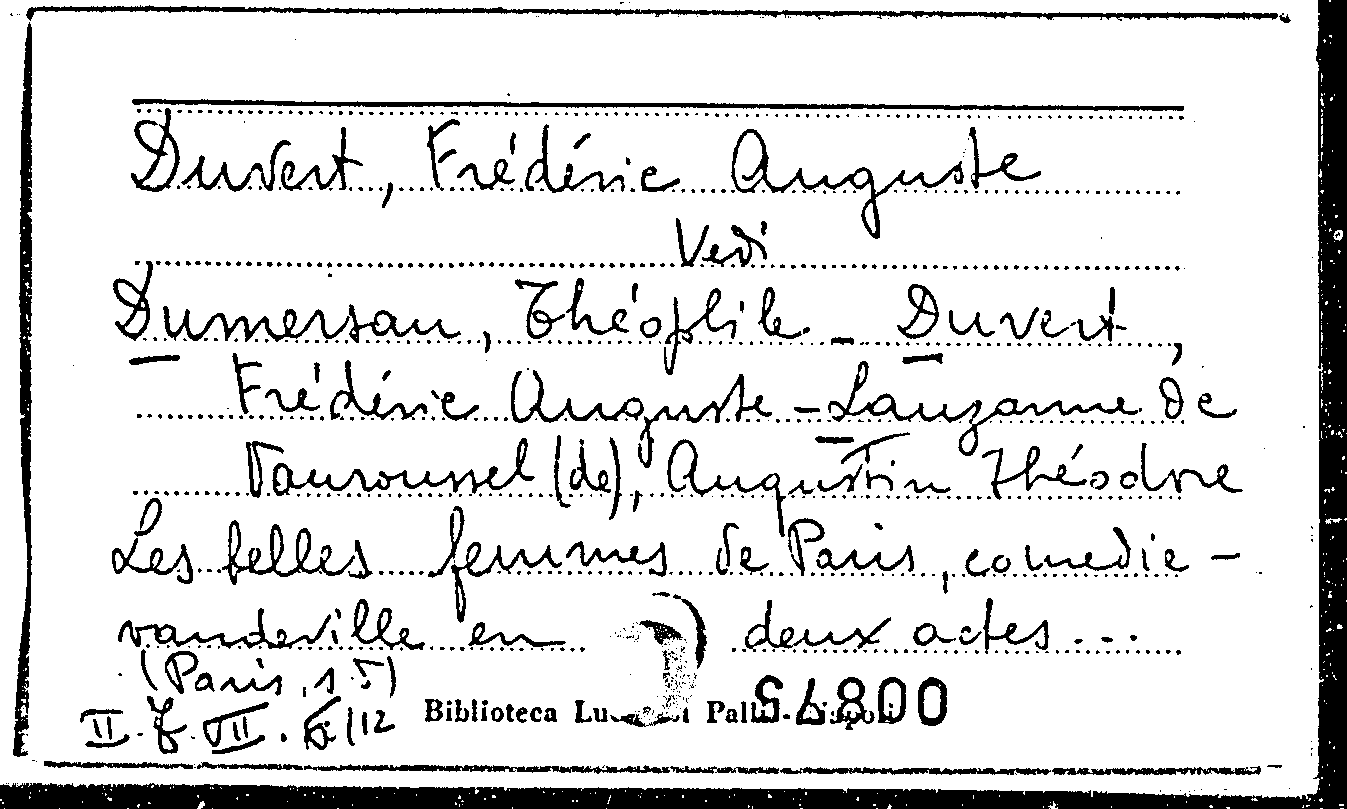 Duvert, Frédéric Auguste
Vedi
Dumersan, Théophile - Duvert,
Frédéric Auguste - Lauzanne de
Vauroussel (de), Augustin Théodore
Les belles femmes de Paris, comedie-
vaudeville en deux actes...
(Paris, s.d.)
II. f. VII. /12
Biblioteca Lucchesi Palli - Napoli
00875